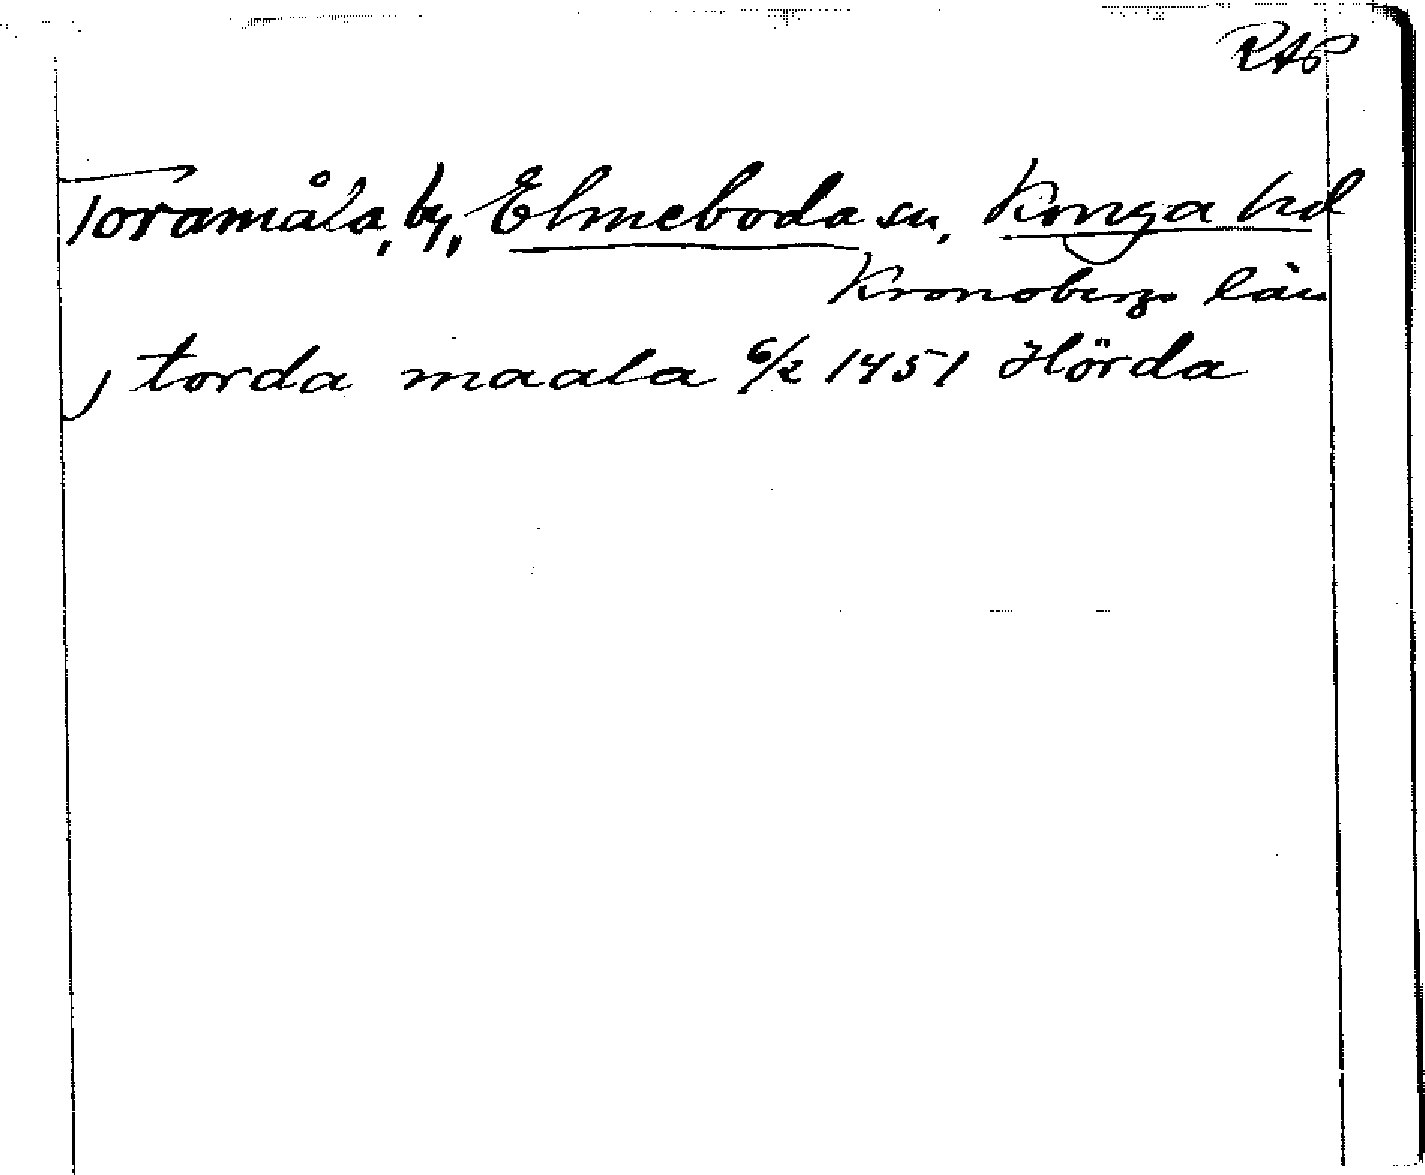 RAP
Toramåla, by, Elmeboda sn, Konga hd
Kronobergs län
j torda maala 6/2 1451 Hörda